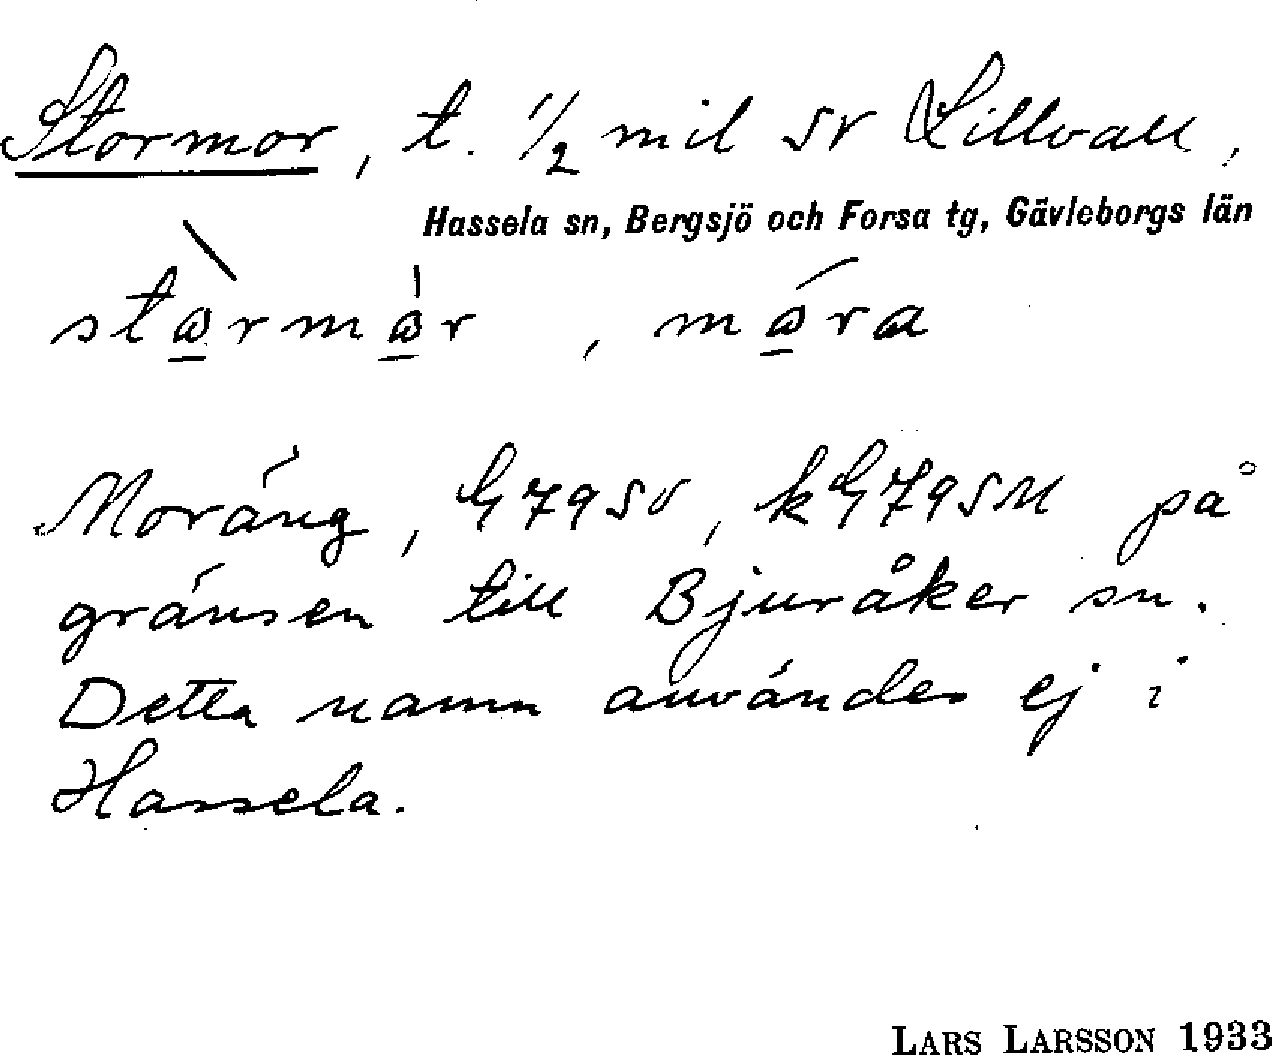 Stormor, t. 1/2 mil SV Lillvall,
Hassela sn, Bergsjö och Forsa tg, Gävleborgs län
stɷ̠̀rmɷ̠̍r , mɷ̠́ra
Moräng, G79SV, kG79SM på
gränsen till Bjuråker sn.
Detta namn användes ej i
Hassela.
LARS LARSSON 1933